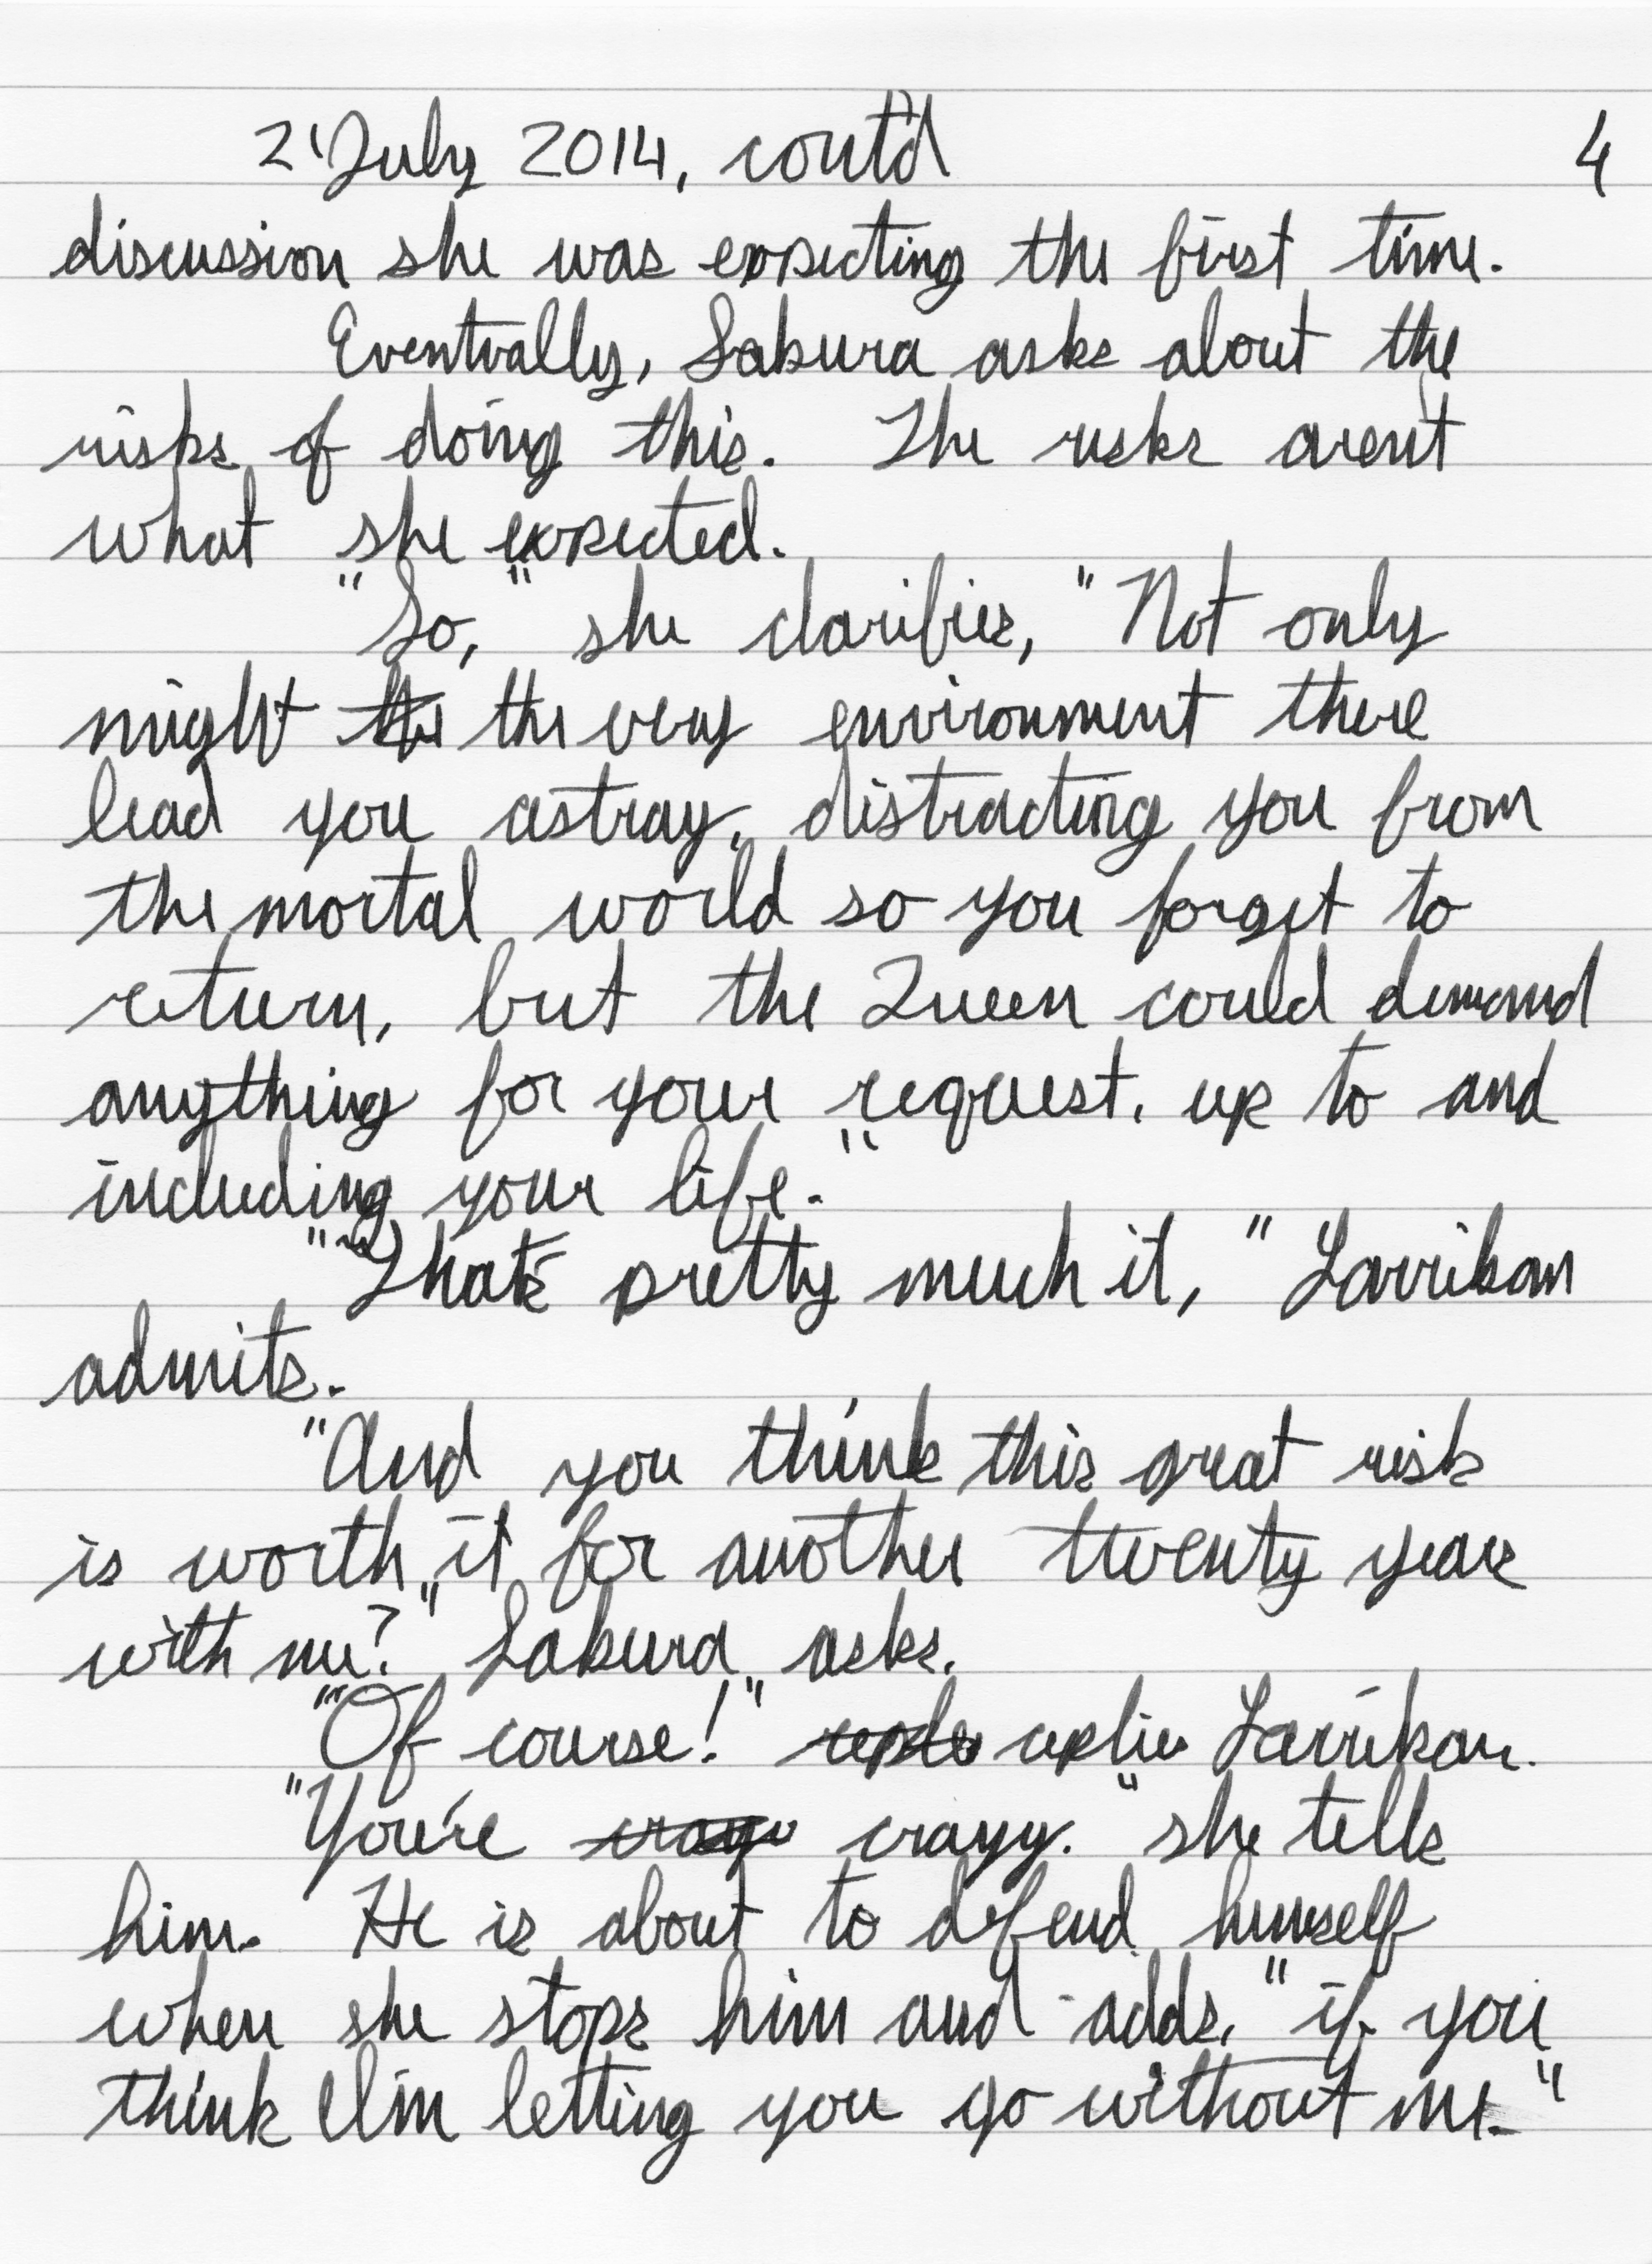 2 July 2014, cont'd 4
discussion she was expecting the first time.
Eventually, Sakura asks about the
risks of doing this. The risks aren't
what she expected.
"So," she clarifies, "Not only
might the the very environment there
lead you astray, distracting you from
the mortal world so you forget to
return, but the Queen could demand
anything for your request, up to and
including your life."
"That's pretty much it," Larrikan
admits.
"And you think this great risk
is worth it for another twenty years
with me?" Sakura asks.
"Of course!" replies Larrikan.
"You're crazy." she tells
him. He is about to defend himself
when she stops him and adds, "if you
think I'm letting you go without me."